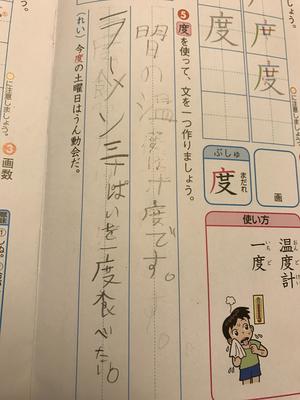 度 度
ぶしゅ
度
まだれ
画
使い方
温度計
おんどけい
一度
いちど
5 度を使って、文を一つ作りましょう。
温度は十度です。
ラーメン三ばいを一度食べたい。
(れい) 今度の土曜日はうん動会だ。
に注意しましょう。
3 画数